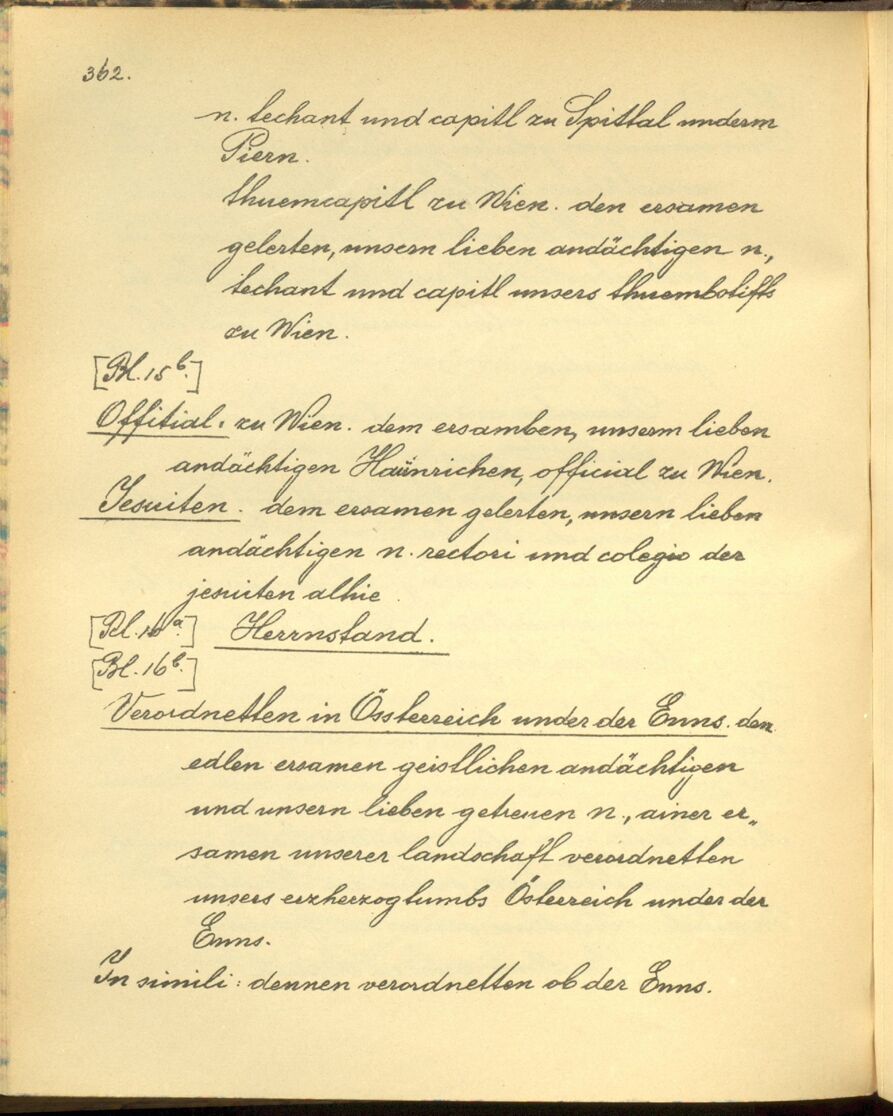 362.
n. techant und capitl zu Spittal underm
Piern.
thuemcapitl zu Wien. den ersamen
gelerten, unsern lieben andächtigen n.,
techant und capitl unsers thuembstiffts
zu Wien.
[Bl. 15b.]
Offitial: zu Wien. dem ersamben, unserm lieben
andächtigen Hainrichen, official zu Wien.
Jesuiten. dem ersamen gelerten, unsern lieben
andächtigen n. rectori und colegio der
jesuiten alhie.
[Bl. 16a.] Herrnstand.
[Bl. 16b.]
Verordnetten in Össterreich under der Enns. den
edlen ersamen geistlichen andächtigen
und unsern lieben getreuen n., ainer er„
samen unserer landschaft verordnetten
unsers erzherzogtumbs Österreich under der
Enns.
In simili: dennen verordnetten ob der Enns.